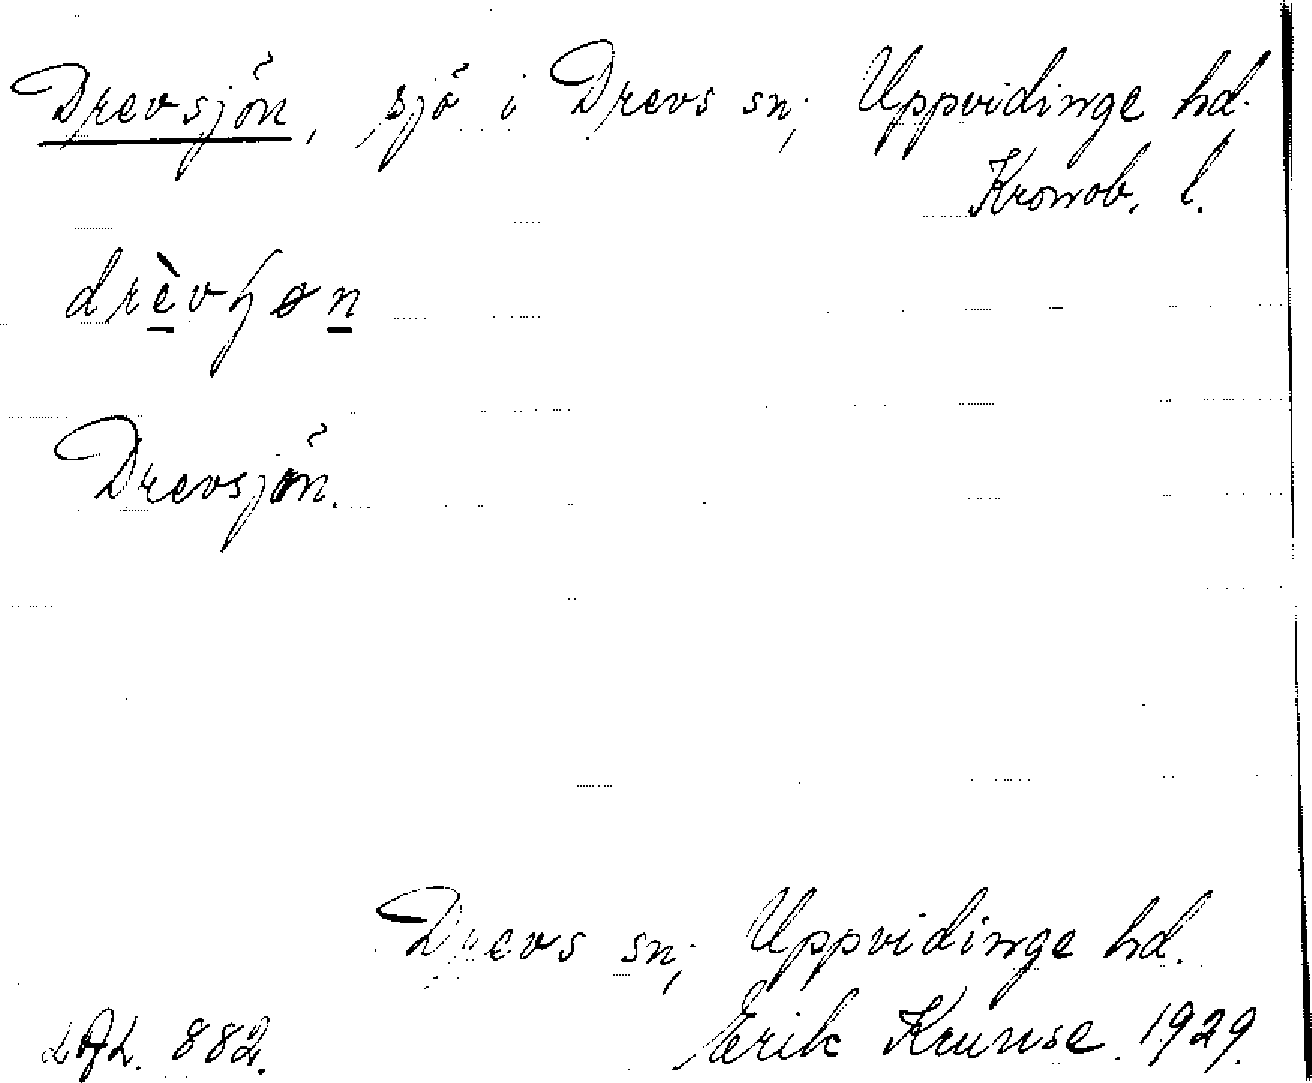 Drevsjön, sjö i Drevs sn; Uppvidinge hd.
Kronob. l.
drèvɧøn
Drevsjön.
Drevs sn; Uppvidinge hd.
LAL. 882.
Erik Kruuse 1929.